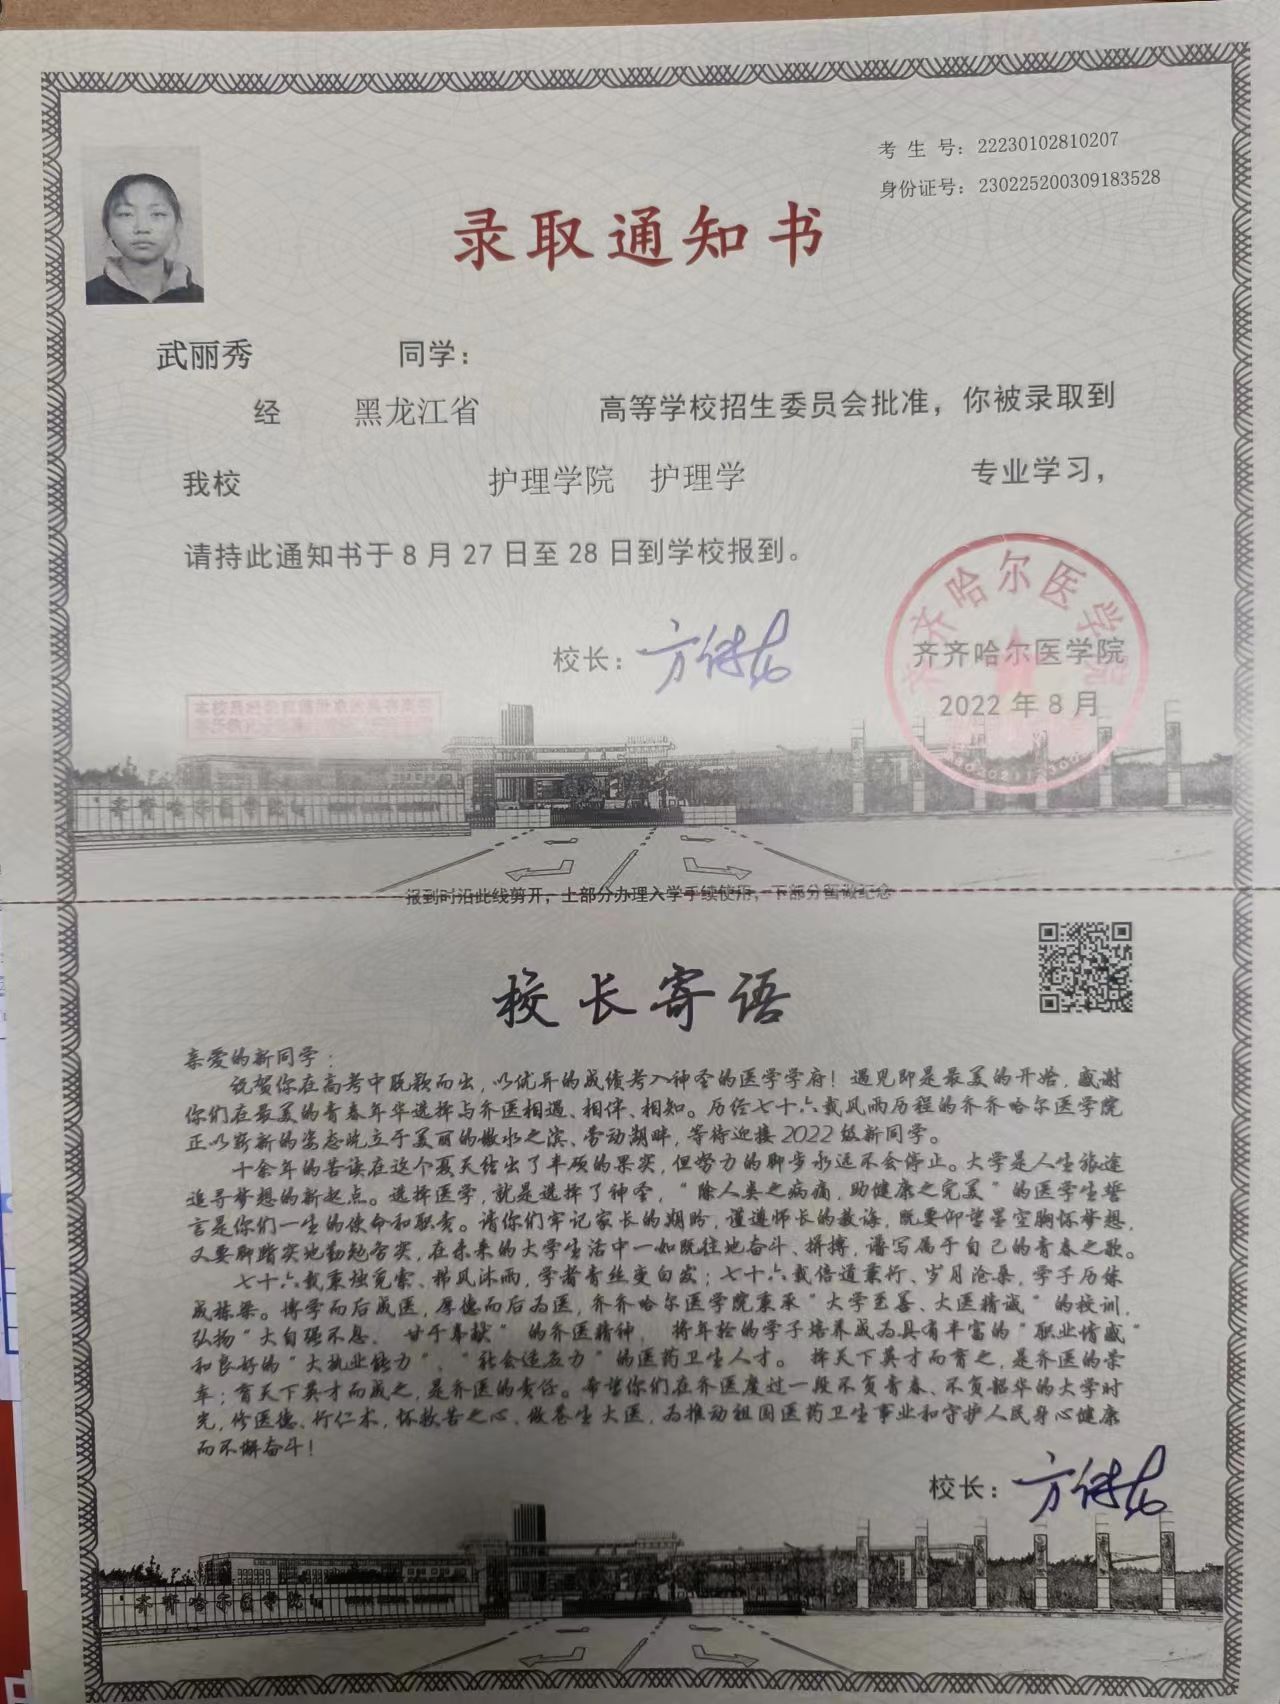 考生号：22230102810207
身份证号：230225200309183528
录取通知书
武丽秀 同学：
经 黑龙江省 高等学校招生委员会批准，你被录取到
我校 护理学院 护理学 专业学习，
请持此通知书于8月27日至28日到学校报到。
校长：
齐齐哈尔医学院
齐齐哈尔医学院
2022年8月
齐齐哈尔医学院
报到时沿此线剪开，上部分办理入学手续使用，下部分留做纪念
校长寄语
亲爱的新同学：
祝贺你在高考中脱颖而出，以优异的成绩考入神圣的医学学府！遇见即是最美的开始，感谢
你们在最美的青春年华选择与齐医相遇、相伴、相知。历经七十六载风雨历程的齐齐哈尔医学院
正以崭新的姿态屹立于美丽的嫩水之滨、劳动湖畔，等待迎接2022级新同学。
十余年的苦读在这个夏天结出了丰硕的果实，但努力的脚步永远不会停止。大学是人生旅途
追寻梦想的新起点。选择医学，就是选择了神圣，“除人类之病痛，助健康之完美”的医学生誓
言是你们一生的使命和职责。请你们牢记家长的期盼，谨遵师长的教诲，既要仰望星空胸怀梦想，
又要脚踏实地勤勉务实，在未来的大学生活中一如既往地奋斗、拼搏，谱写属于自己的青春之歌。
七十六载秉烛览索、栉风沐雨，学者青丝变白发；七十六载倍道兼行、岁月沧桑，学子历练
成栋梁。博学而后成医，厚德而后为医，齐齐哈尔医学院秉承“大学至善、大医精诚”的校训，
弘扬“大自强不息、甘于奉献”的齐医精神，将年轻的学子培养成为具有丰富的“职业情感”
和良好的“大执业能力”、“社会适应力”的医药卫生人才。择天下英才而育之，是齐医的荣
幸；育天下英才而成之，是齐医的责任。希望你们在齐医度过一段不负青春、不负韶华的大学时
光，修医德、行仁术，怀救苦之心、做苍生大医，为推动祖国医药卫生事业和守护人民身心健康
而不懈奋斗！
校长：
齐齐哈尔医学院